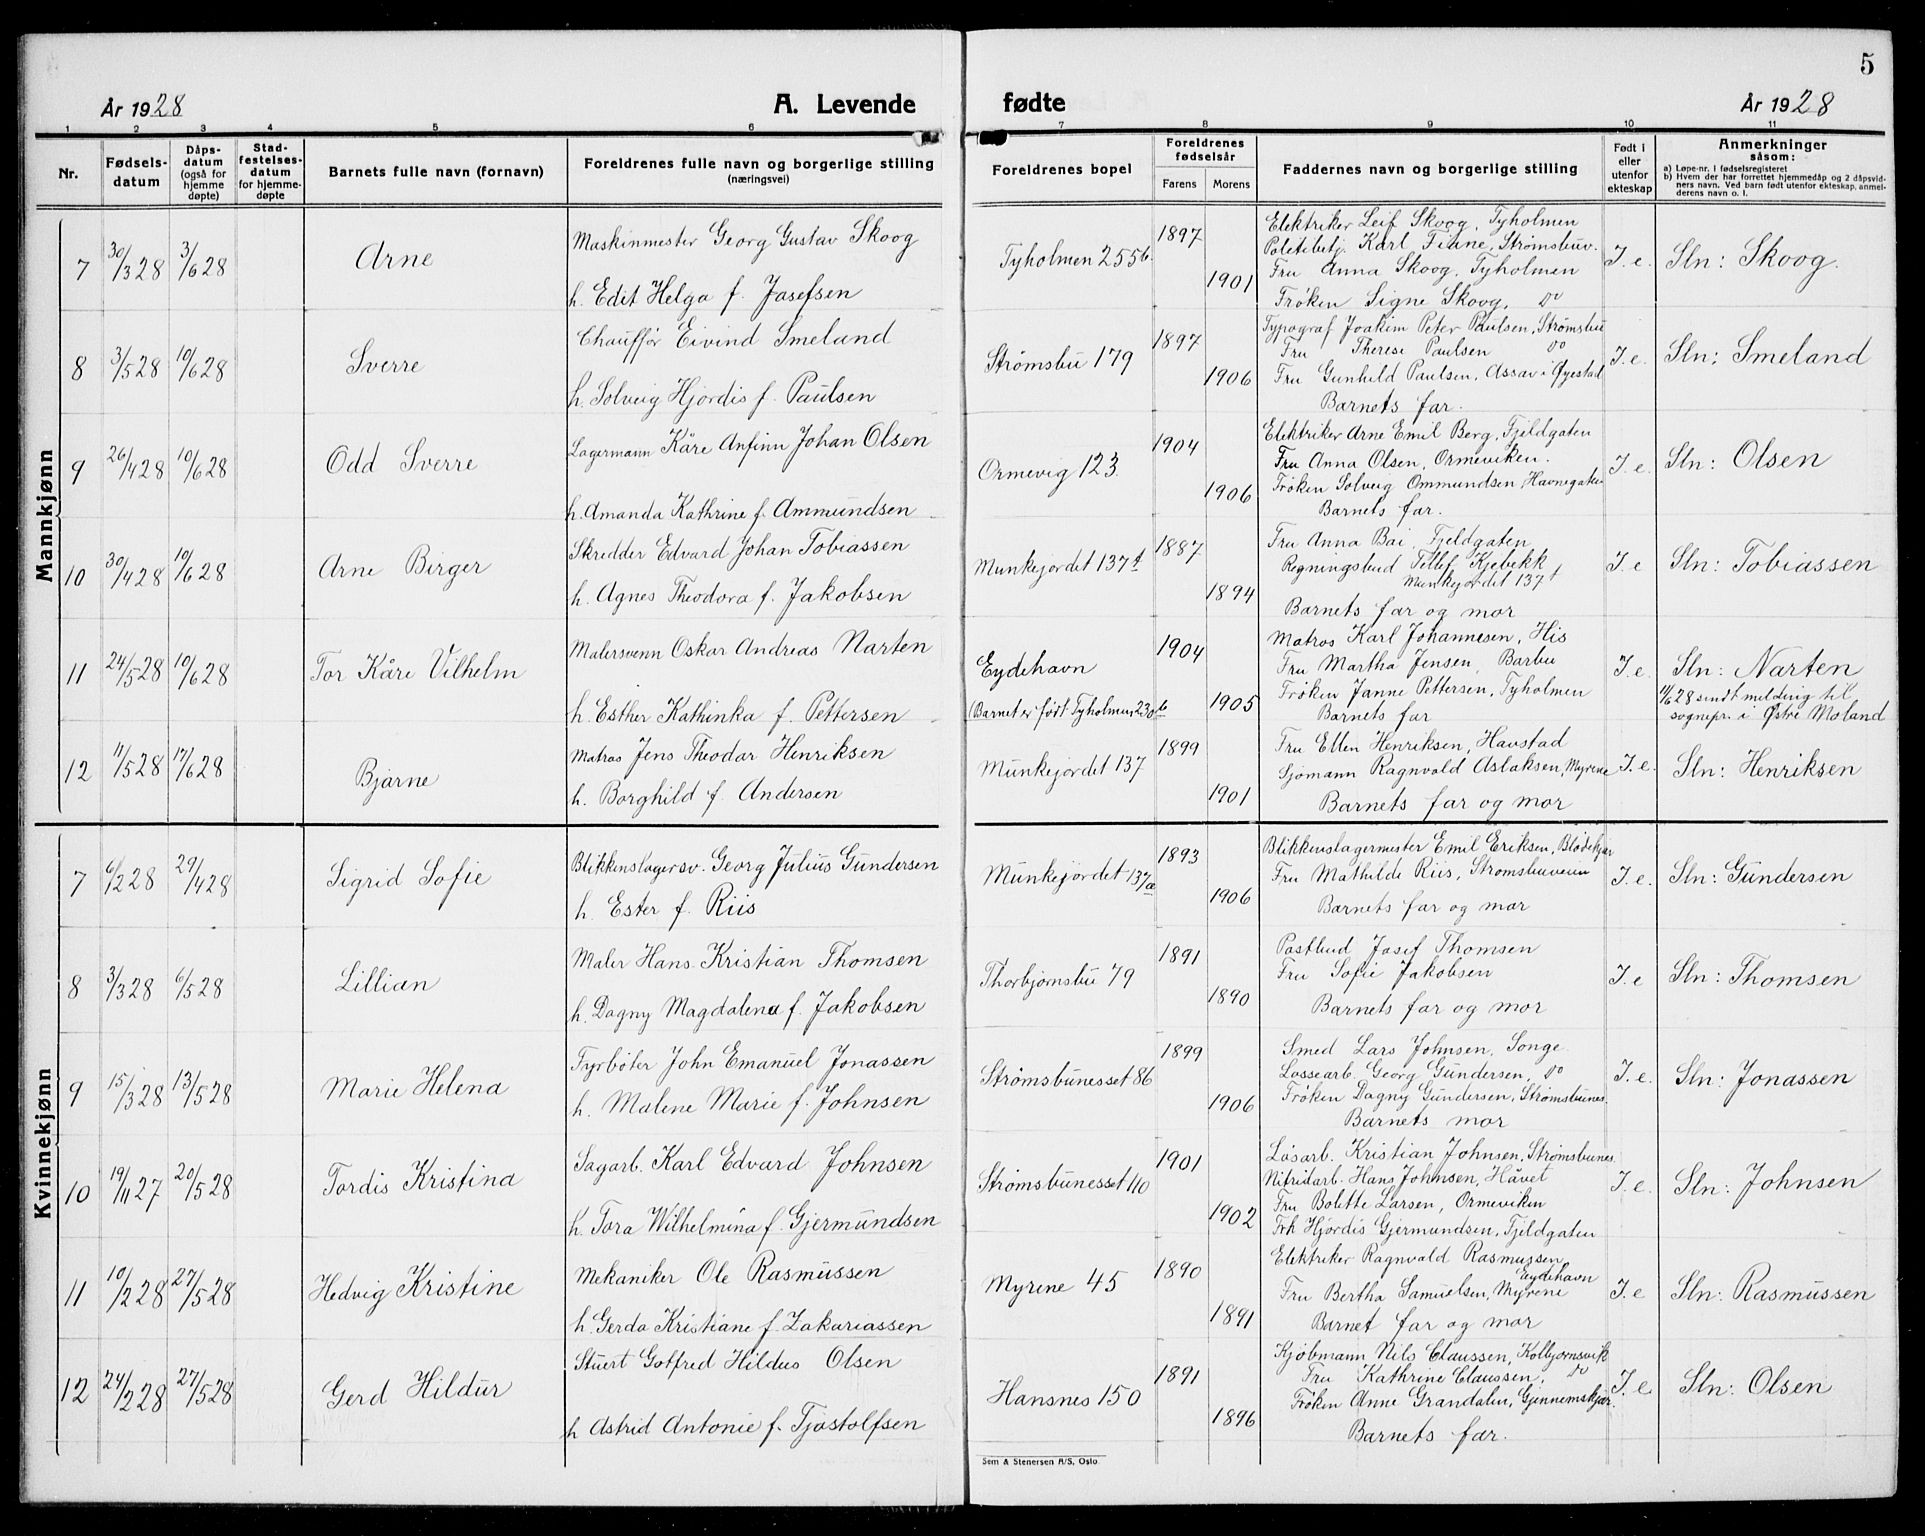 5
År 1928 A. Levende fødte År 1928
1 2 3 4 5 6 7 8 9 10 11
Nr. Fødsels-datum Dåps-datum (også for hjemme døpte) Stad-festelses-datum for hjemme-døpte Barnets fulle navn (fornavn) Foreldrenes fulle navn og borgerlige stilling (næringsvei) Foreldrenes bopel Foreldrenes fødselsår Farens Morens Faddernes navn og borgerlige stilling Født i eller utenfor ekteskap Anmerkninger såsom:
a) Løpe-nr. i fødselsregisteret
b) Hvem der har forrettet hjemmedåp og 2 dåpsvidners navn. Ved barn født utenfor ekteskap, anmelderens navn o. l.
Mannkjønn
7 30/3 28 3/6 28 Arne
Maskinmester Georg Gustav Skoog
h. Edit Helga f. Josefsen
Tyholmen 255b. 1897 1901
Elektriker Leif Skoog, Tyholmen
Politibetj. Karl Fiane, Strømsbuv.
Fru Anna Skoog, Tyholmen
Frøken Signe Skoog, do
I. e. Sln: Skoog.
8 3/5 28 10/6 28 Sverre
Chauffør Eivind Smeland
h. Solveig Hjørdis f. Paulsen
Strømsbu 179 1897 1906
Typograf Joakim Peter Paulsen, Strømsbu
Fru Therese Paulsen do
Fru Gunhild Paulsen, Assav i Øyestad
Barnets far.
I. e. Sln: Smeland
9 26/4 28 10/6 28 Odd Sverre
Lagermann Kåre Anfinn Johan Olsen
h. Amanda Kathrine f. Ammundsen
Ormevig 123. 1904 1906
Elektriker Arne Emil Berg, Fjeldgaten
Fru Anna Olsen, Ormeviken.
Frøken Solveig Ommundsen, Havnegaten
Barnets far.
I. e. Sln: Olsen
10 30/4 28 10/6 28 Arne Birger
Skredder Edvard Johan Tobiassen
h. Agnes Theodora f. Jakobsen
Munkejordet 137t 1887 1894
Fru Anna Bai, Fjeldgaten
Regningsbud Tellef Kjebekk
Munkejordet 137t
Barnets far og mor
I. e Sln: Tobiassen
11 24/5 28 10/6 28 Tor Kåre Vilhelm
Malersvenn Oskar Andreas Narten
h. Esther Kathinka f. Pettersen
Eydehavn
(Barnet er født Tyholmen 230b 1904 1905
Matros Karl Johannesen, His
Fru Martha Jensen, Barbu
Frøken Janne Pettersen, Tyholmen
Barnets far
I. e. Sln: Narten
11/6 28 sendt melding til
sognepr. i Østre Moland
12 11/5 28 17/6 28 Bjarne
Matros Jens Theodor Henriksen
h. Borghild f. Andersen
Munkejordet 137 1899 1901
Fru Ellen Henriksen, Havstad
Sjømann Ragnvald Aslaksen, Myrene
Barnets far og mor
I. e. Sln: Henriksen
Kvinnekjønn
7 6/2 28 29/4 28 Sigrid Sofie
Blikkenslagersv. Georg Julius Gundersen
h. Ester f. Riis
Munkejordet 137a 1893 1906
Blikkenslagermester Emil Eriksen, Blødekjær
Fru Mathilde Riis, Strømsbuveien
Barnets far og mor
I. e. Sln: Gundersen
8 3/3 28 6/5 28 Lillian
Maler Hans Kristian Thomsen
h. Dagny Magdalena f. Jakobsen
Thorbjørnsbu 79 1891 1890
Postbud Josef Thomsen
Fru Sofie Jakobsen
Barnets far og mor
I. e Sln: Thomsen
9 15/3 28 13/5 28 Marie Helena
Fyrbøter John Emanuel Jonassen
h. Malene Marie f. Johnsen
Strømsbunesset 86 1899 1906
Smed Lars Johnsen, Songe.
Lossearb. Georg Gundersen, do
Frøken Dagny Gundersen, Strømsbunes.
Barnets mor
I. e. Sln: Jonassen
10 19/11 27 20/5 28 Tordis Kristina
Sagarb. Karl Edvard Johnsen
h. Tora Wilhelmina f. Gjermundsen
Strømsbunesset 110 1901 1902
Løsarb. Kristian Johnsen, Strømsbunes.
Nitridarb. Hans Johnsen, Håvet
Fru Bolette Larsen, Ormeviken
Frk Hjørdis Gjermundsen, Fjeldgaten
I. e. Sln: Johnsen
11 10/2 28 27/5 28 Hedvig Kristine
Mekaniker Ole Rasmussen
h. Gerda Kristiane f. Zakariassen
Myrene 45 1890 1891
Elektriker Ragnvald Rasmussen
Eydehavn
Fru Bertha Samuelsen, Myrene
Barnet far og mor
I. e Sln: Rasmussen
12 24/2 28 27/5 28 Gerd Hildur
Stuert Gotfred Hildus Olsen
h Astrid Antonie f. Tjostolfsen
Hansnes 150 1891 1896
Kjøbmann Nils Claussen, Kolbjørnsvik
Fru Kathrine Claussen, do
Frøken Anne Grandalen, Gjennemskjær.
Barnets far.
I. e. Sln: Olsen
Sem & Stenersen A/S, Oslo